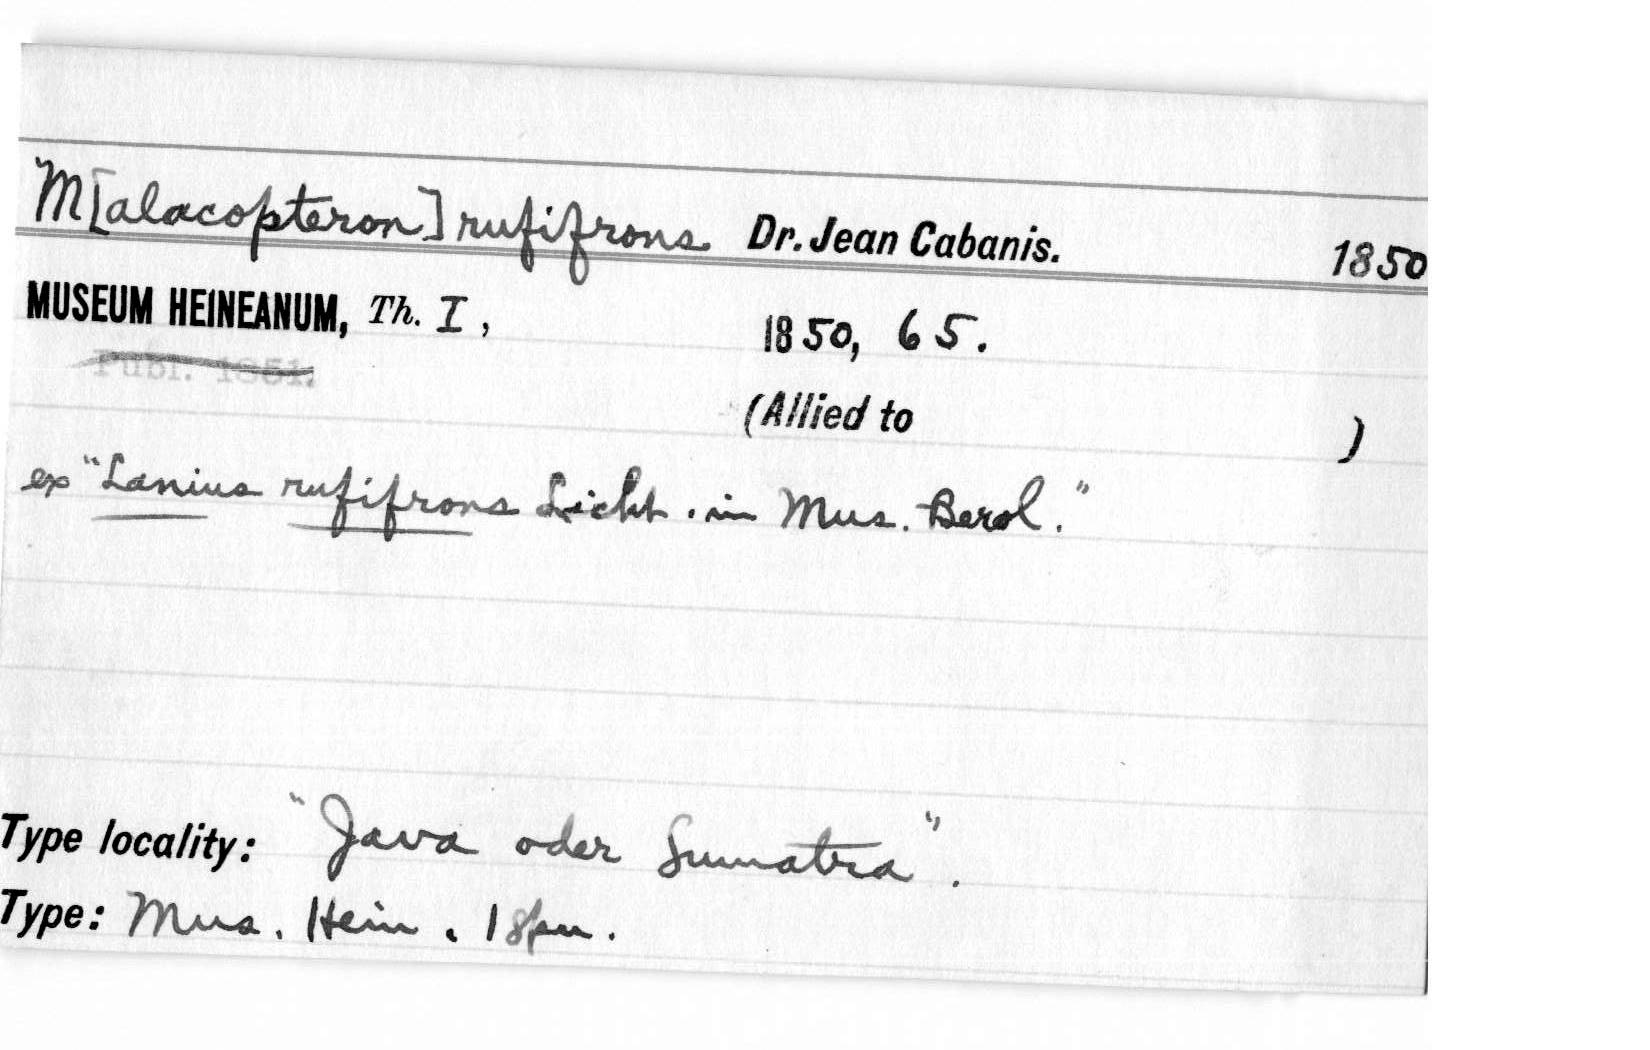 M[alacopteron] rufifrons Dr. Jean Cabanis. 1850
MUSEUM HEINEANUM, Th. I, 1850, 65.
Publ. 1851.
(Allied to )
ex "Lanius rufifrons Licht. in Mus. Berol."
Type locality: "Java oder Sumatra".
Type: Mus. Hein. 1 spn.